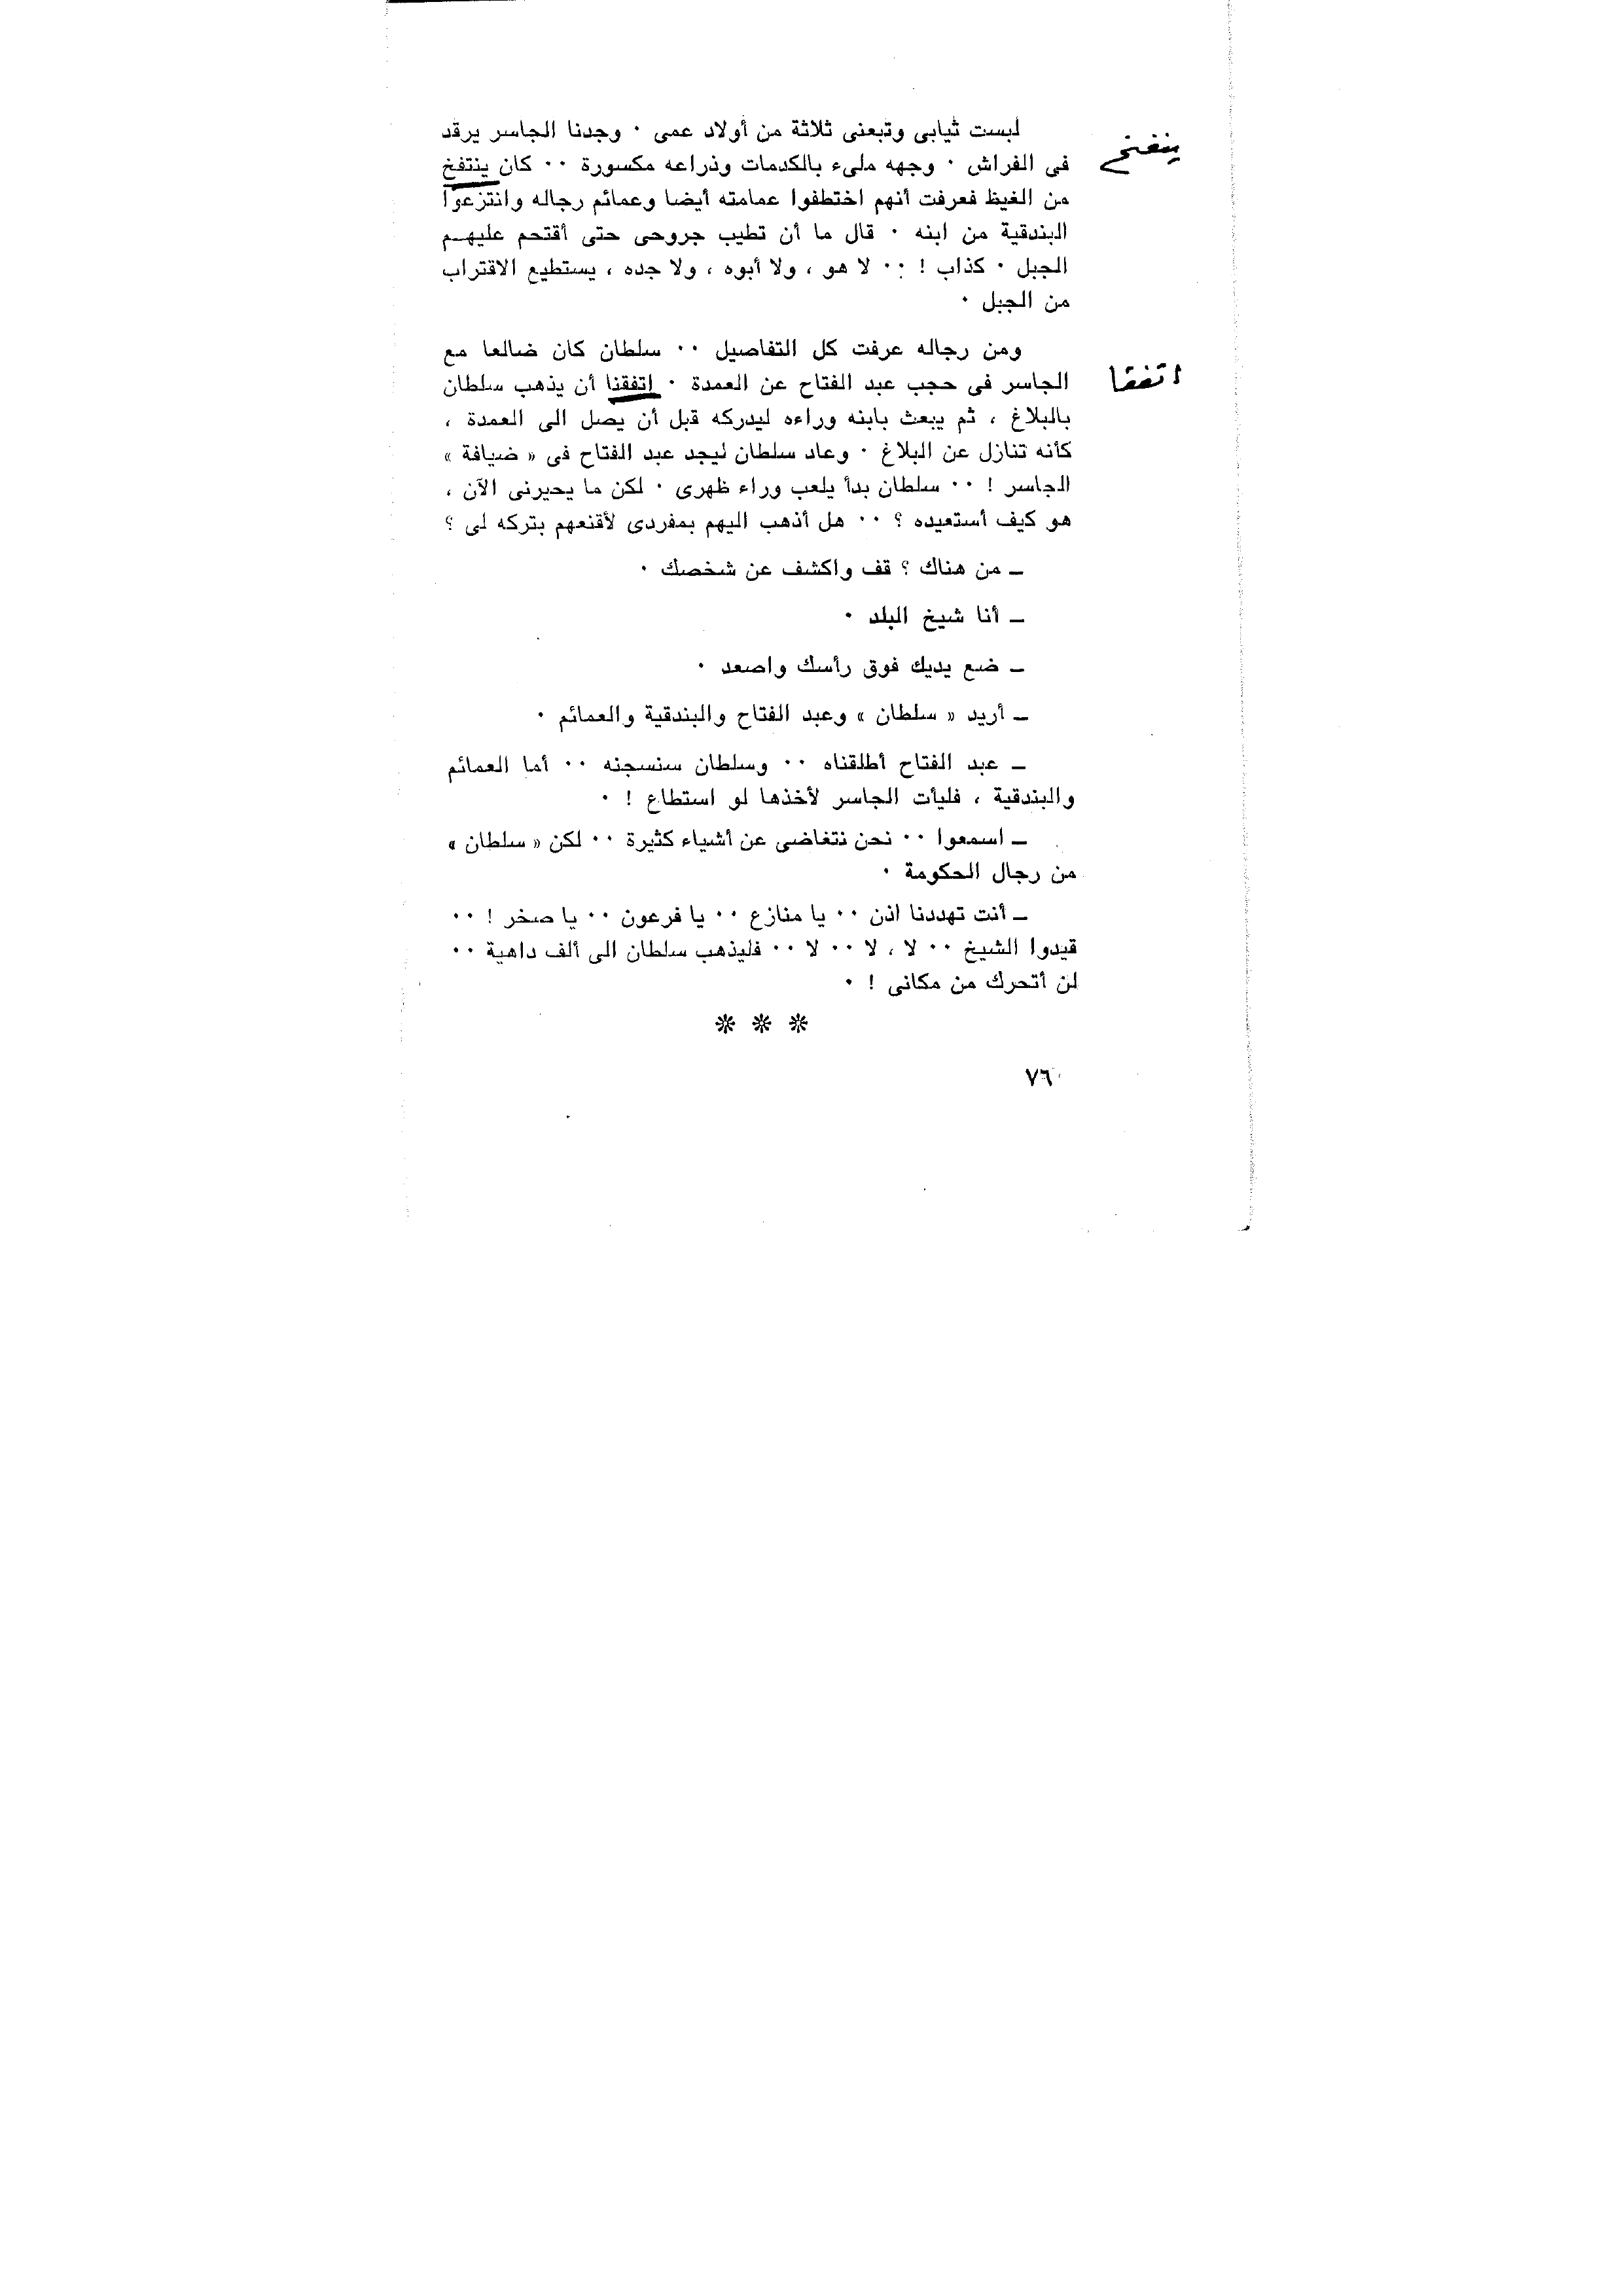 لبست ثيابى وتبعنى ثلاثة من أولاد عمى ٠ وجدنا الجاسر يرقد
فى الفراش ٠ وجهه ملىء بالكدمات وذراعه مكسورة ٠٠ كان ينتفخ
ينفخ
من الغيظ فعرفت أنهم اختطفوا عمامته أيضا وعمائم رجاله وانتزعوا
البندقية من ابنه ٠ قال ما أن تطيب جروحى حتى أقتحم عليهم
الجبل ٠ كذاب ! ٠٠ لا هو ، ولا أبوه ، ولا جده ، يستطيع الاقتراب
من الجبل ٠
ومن رجاله عرفت كل التفاصيل ٠٠ سلطان كان ضالعا مع
الجاسر فى حجب عبد الفتاح عن العمدة ٠ إتفقنا أن يذهب سلطان
اتفقا
بالبلاغ ، ثم يبعث بابنه وراءه ليدركه قبل أن يصل الى العمدة ،
كأنه تنازل عن البلاغ ٠ وعاد سلطان ليجد عبد الفتاح فى « ضيافة »
الجاسر ! ٠٠ سلطان بدأ يلعب وراء ظهرى ٠ لكن ما يحيرنى الآن ،
هو كيف أستعيده ؟ ٠٠ هل أذهب اليهم بمفردى لأقنعهم بتركه لى ؟
ــ من هناك ؟ قف واكشف عن شخصك ٠
ــ أنا شيخ البلد ٠
ــ ضع يديك فوق رأسك واصعد ٠
ــ أريد « سلطان » وعبد الفتاح والبندقية والعمائم ٠
ــ عبد الفتاح أطلقناه ٠٠ وسلطان سنسجنه ٠٠ أما العمائم
والبندقية ، فليأت الجاسر لأخذها لو استطاع ! ٠
ــ اسمعوا ٠٠ نحن نتغاضى عن أشياء كثيرة ٠٠ لكن « سلطان »
من رجال الحكومة ٠
ــ أنت تهددنا اذن ٠٠ يا منازع ٠٠ يا فرعون ٠٠ يا صخر ! ٠٠
قيدوا الشيخ ٠٠ لا ، لا ٠٠ لا ٠٠ فليذهب سلطان الى ألف داهية ٠٠
لن أتحرك من مكانى ! ٠
※ ※ ※
٧٦